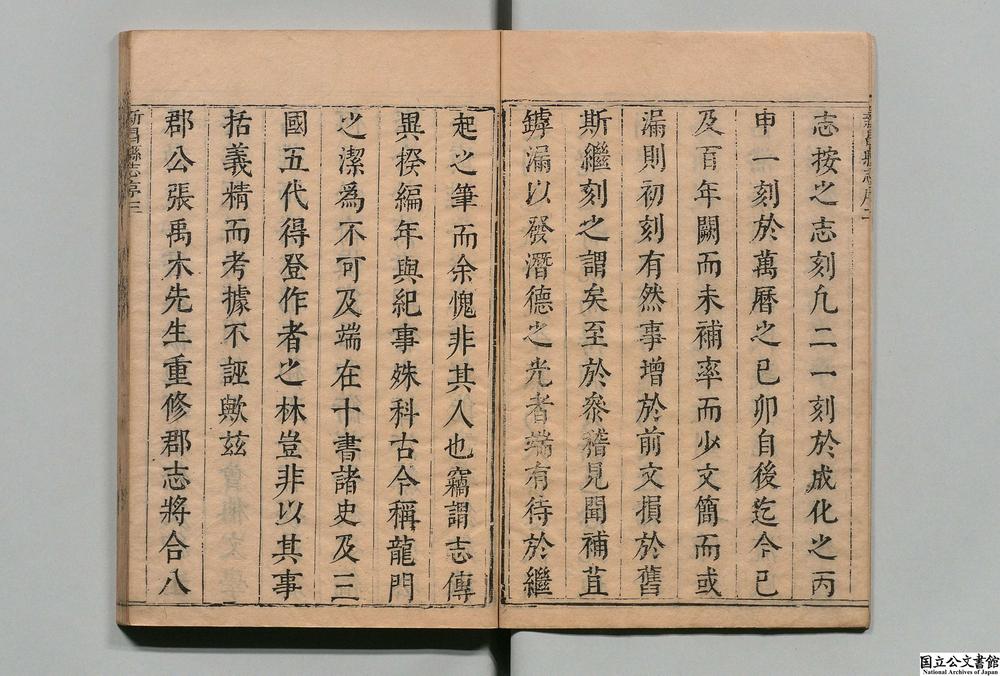 志按之志刻凢二一刻於成化之丙
申一刻於萬曆之己卯自後迄今已
及百年闕而未補率而少文簡而或
漏則初刻有然事增於前文損於舊
斯繼刻之謂矣至於叅稽見聞補苴
罅漏以發潛德之光者端有待於繼
起之筆而余愧非其人也竊謂志傳
異揆編年與紀事姝科古今稱龍門
之潔爲不可及端在十書諸史及三
國五代得登作者之林豈非以其事
括義精而考據不誣歟兹
郡公張禹木先生重修郡志將合八
新昌縣志序三
国立公文書館
National Archives of Japan